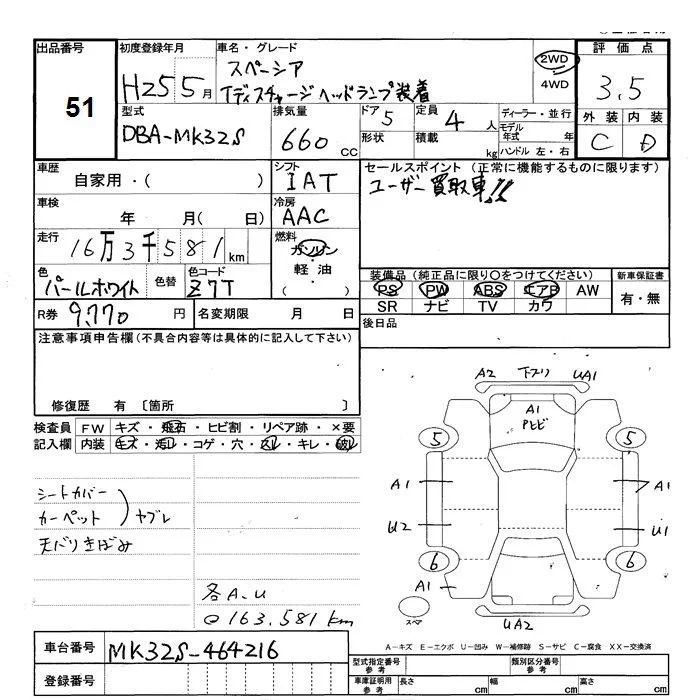 出品番号 初度登録年月 車名・グレード 2WD 評価点
51 H25 5月 スペーシア 4WD 3.5
Tディスチャージヘッドランプ装着
型式 排気量 ドア 5 定員 4人 ディーラー・並行 外装 内装
DBA-MK32S 660cc 形状 積載 kg モデル年式 年 C D
ハンドル 左・右
車歴 シフト セールスポイント(正常に機能するものに限ります)
自家用・( ) IAT ユーザー買取車!!
車検 冷房
年 月( 日) AAC
走行 燃料
16万3千581km ガソリン
色 色替 色コード 軽油 装備品(純正品に限り○をつけてください) 新車保証書
パールホワイト Z7T ・( ) PS PW ABS エアB AW 有・無
R券 9,770円 名変期限 月 日 SR ナビ TV カワ
後日品
注意事項申告欄(不具合内容等は具体的に記入して下さい)
修復歴 有 〔箇所 〕
検査員 FW キズ・飛石・ヒビ割・リペア跡・×要
記入欄 内装 キズ・汚れ・コゲ・穴・スレ・キレ・破レ
シートカバー
カーペット ) ヤブレ
天バリきばみ
各A.U
@163.581km
A2 下スリ UA1
A1
Pヒビ
5 5
A1 A1
U2 U1
6 6
A1
スペア UA2
A-キズ E-エクボ U-凹み W-補修跡 S-サビ C-腐食 XX-交換済
車台番号 MK32S-464216
登録番号
型式指定番号 参考 類別区分番号 参考
車庫証明用 参考 長さ cm 幅 cm 高さ cm